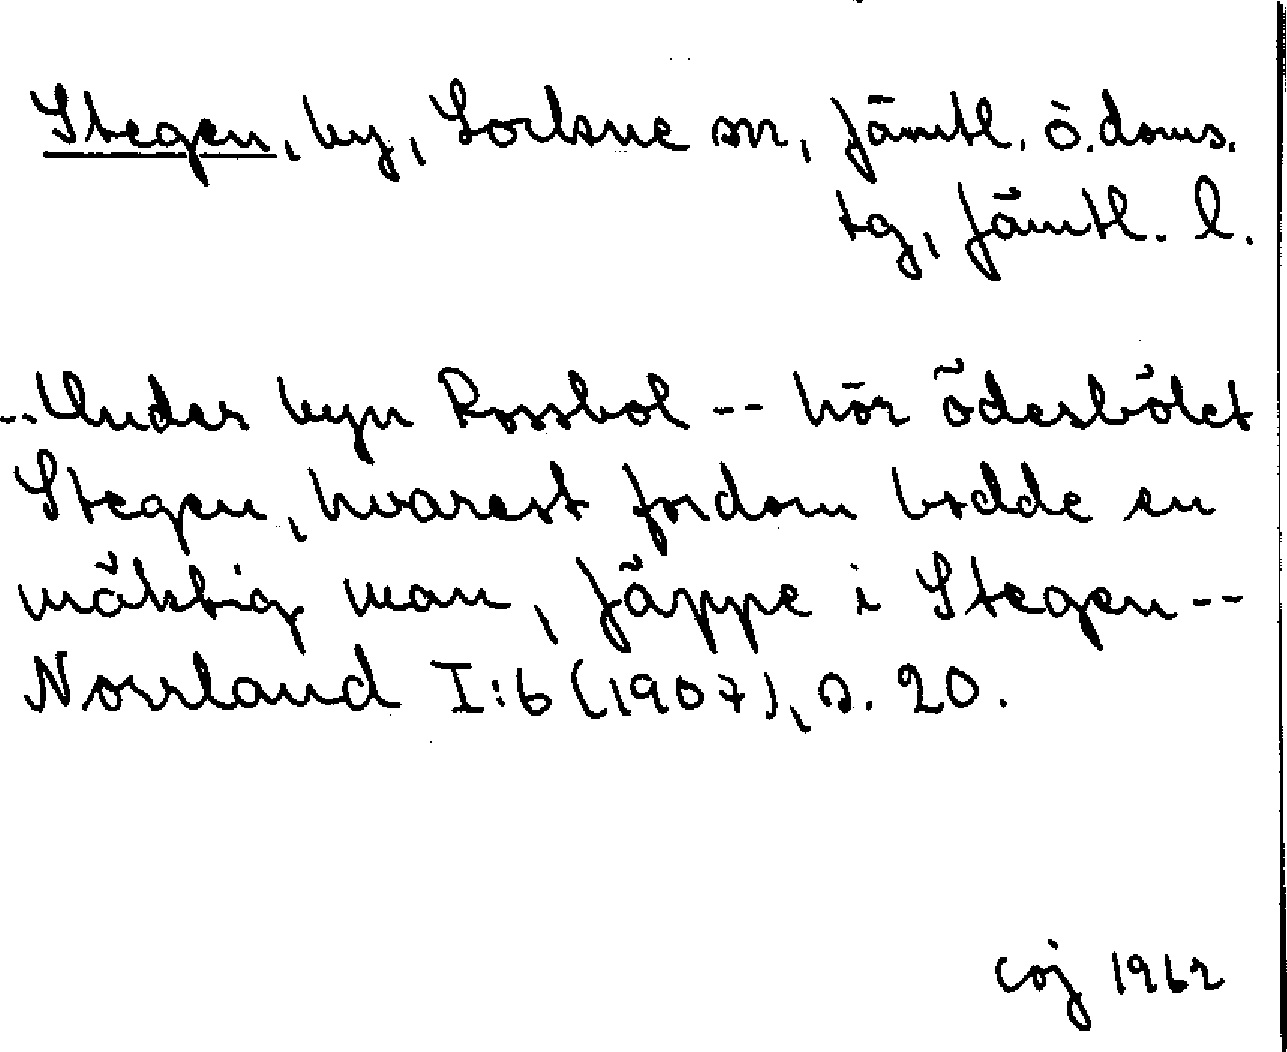 Stegen, by, Lockne sn, Jämtl. ö. doms.
tg, Jämtl. l.
-- Under byn Rossbol -- hör ödesbölet
Stegen, hvarest fordom bodde en
mäktig man, Jäppe i Stegen --
Norrland I:6 (1907), s. 20.
coj 1962